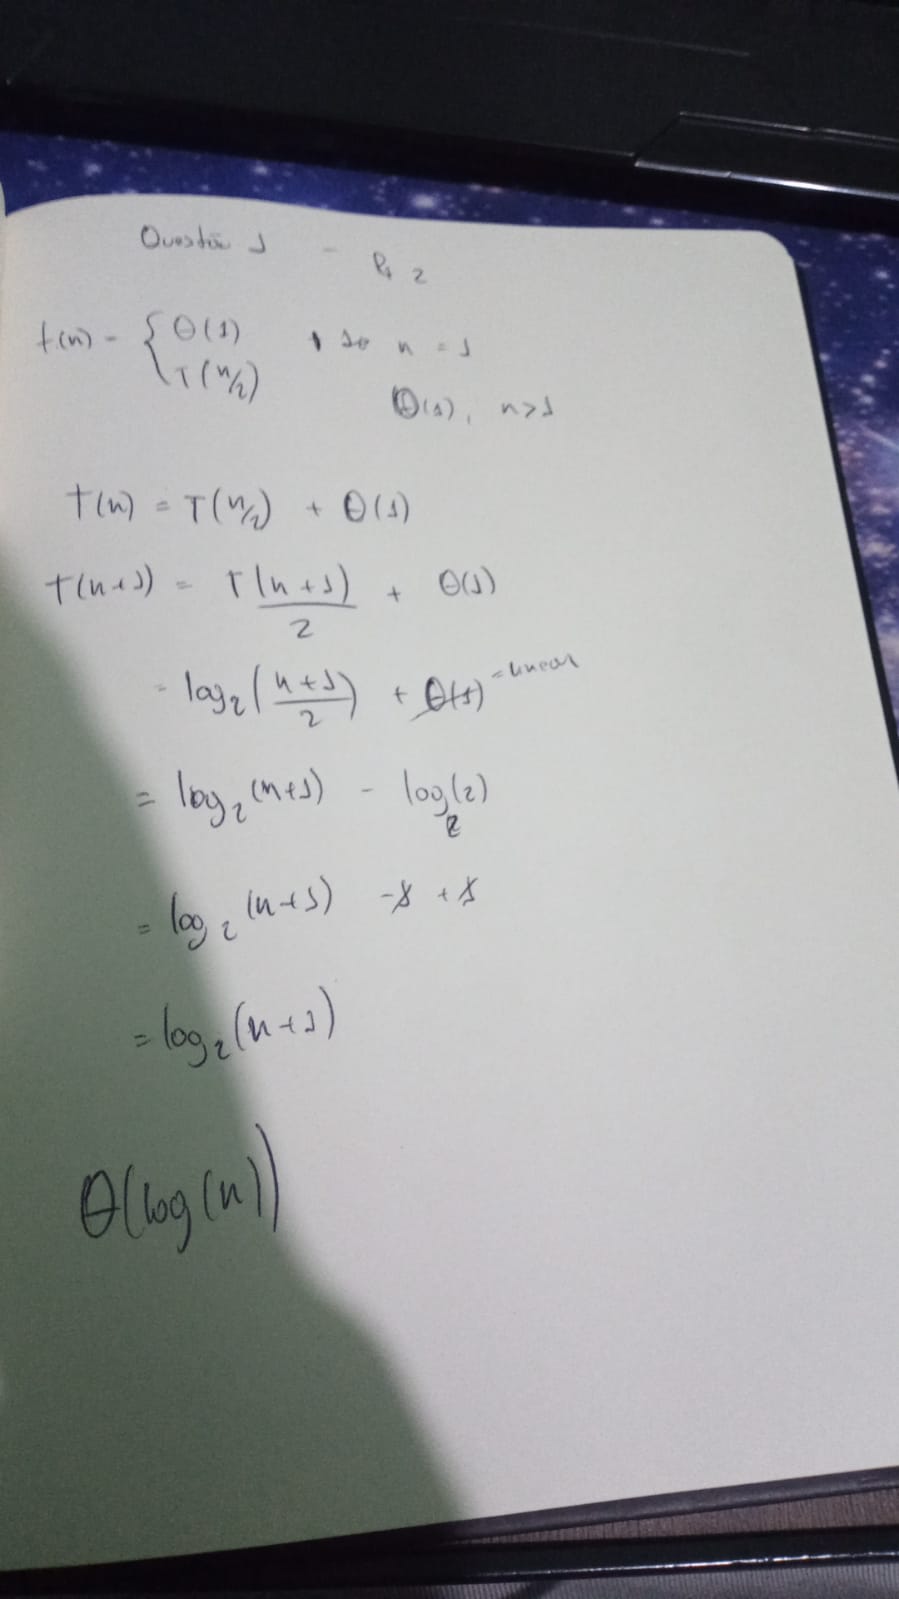 Questão 1 - P2
t(n) - { Θ(1) , se n = 1
T(n/2) Θ(1), n>1
T(n) = T(n/2) + Θ(1)
T(n+1) = T(n+1)/2 + Θ(1)
= log₂(n+1/2) + Θ(1) = linear
= log₂(n+1) - log₂(2)
= log₂(n+1) -1 +1
= log₂(n+1)
Θ(log(n))